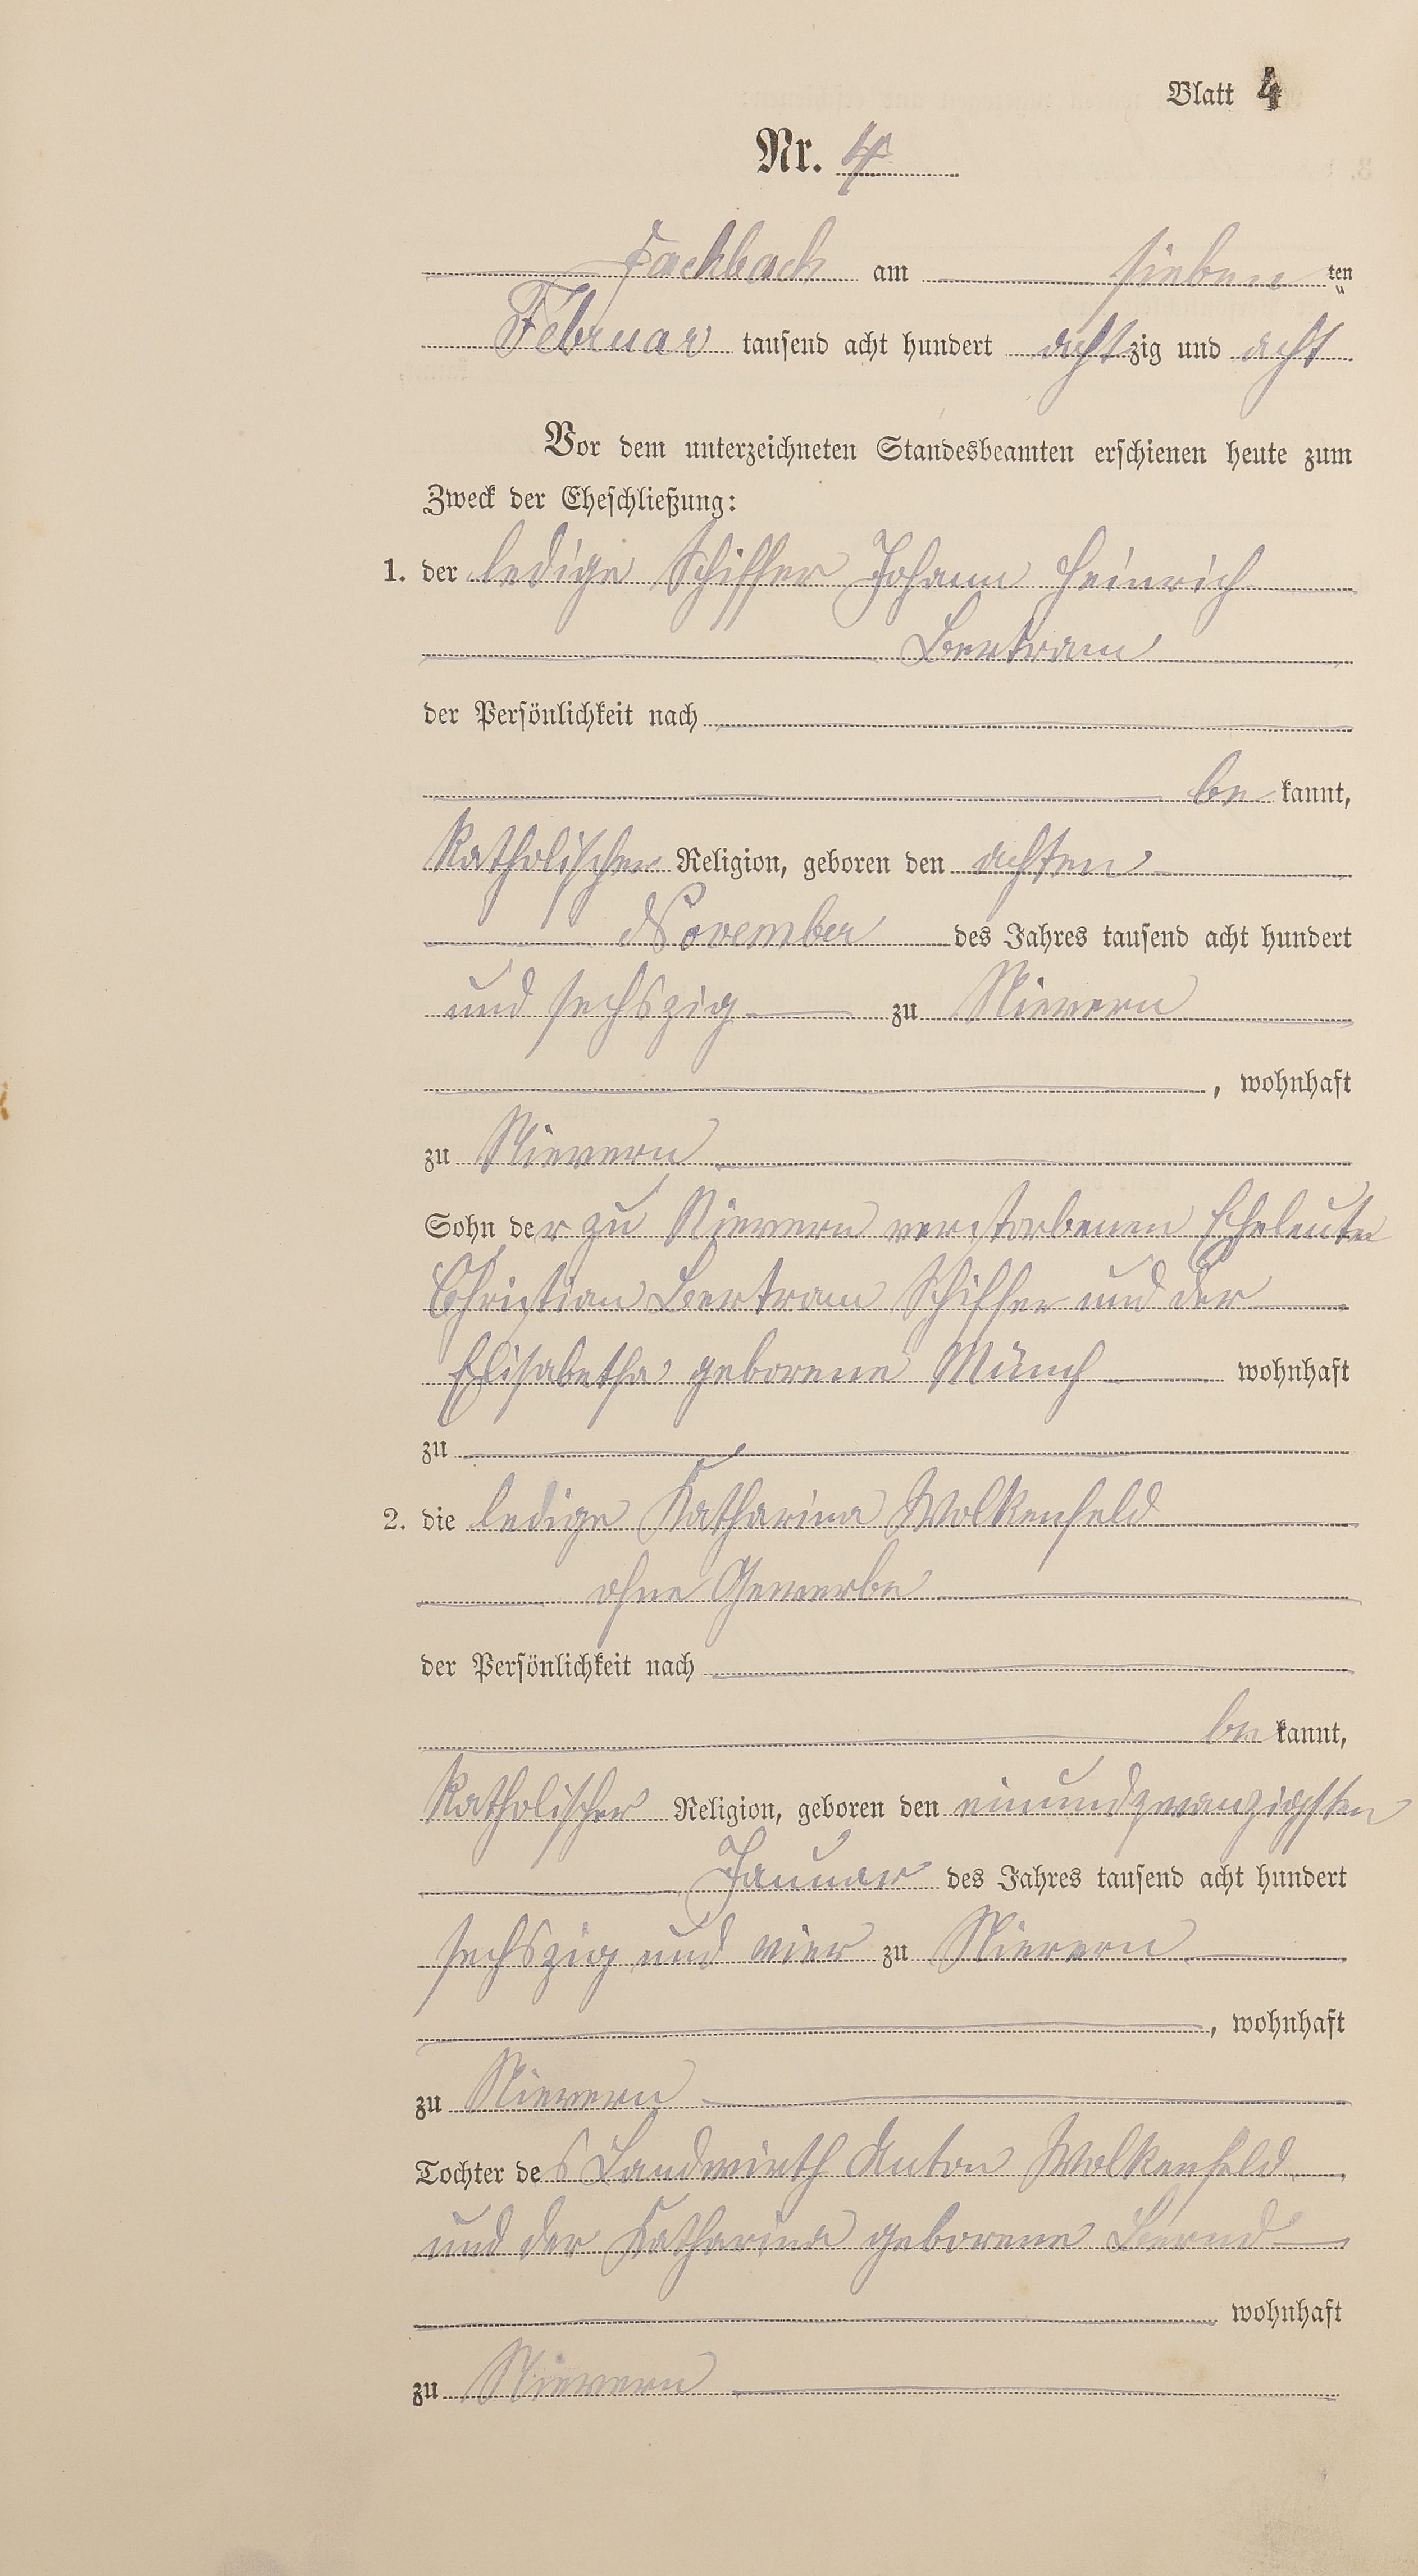 Blatt 4
Nr. 4
Fachbach am sieben ten
Februar tausend acht hundert achtzig und acht
Vor dem unterzeichneten Standesbeamten erschienen heute zum
Zweck der Eheschließung:
1. der ledige Schiffer Johann Heinrich
Bertram
der Persönlichkeit nach
be kannt,
katholischer Religion, geboren den achten
November des Jahres tausend acht hundert
und sechszig zu Nievern
, wohnhaft
zu Nievern
Sohn der zu Nievern verstorbenen Eheleute
Christian Bertram Schiffer und der
Elisabetha geborene Münch wohnhaft
zu
2. die ledige Katharina Wolkenfeld
ohne Gewerbe
der Persönlichkeit nach
be kannt,
katholischer Religion, geboren den einundzwanzigsten
Januar des Jahres tausend acht hundert
sechszig und vier zu Nievern
, wohnhaft
zu Nievern
Tochter des Landwirth Anton Wolkenfeld
und der Katharina geborene Bernd
wohnhaft
zu Nievern